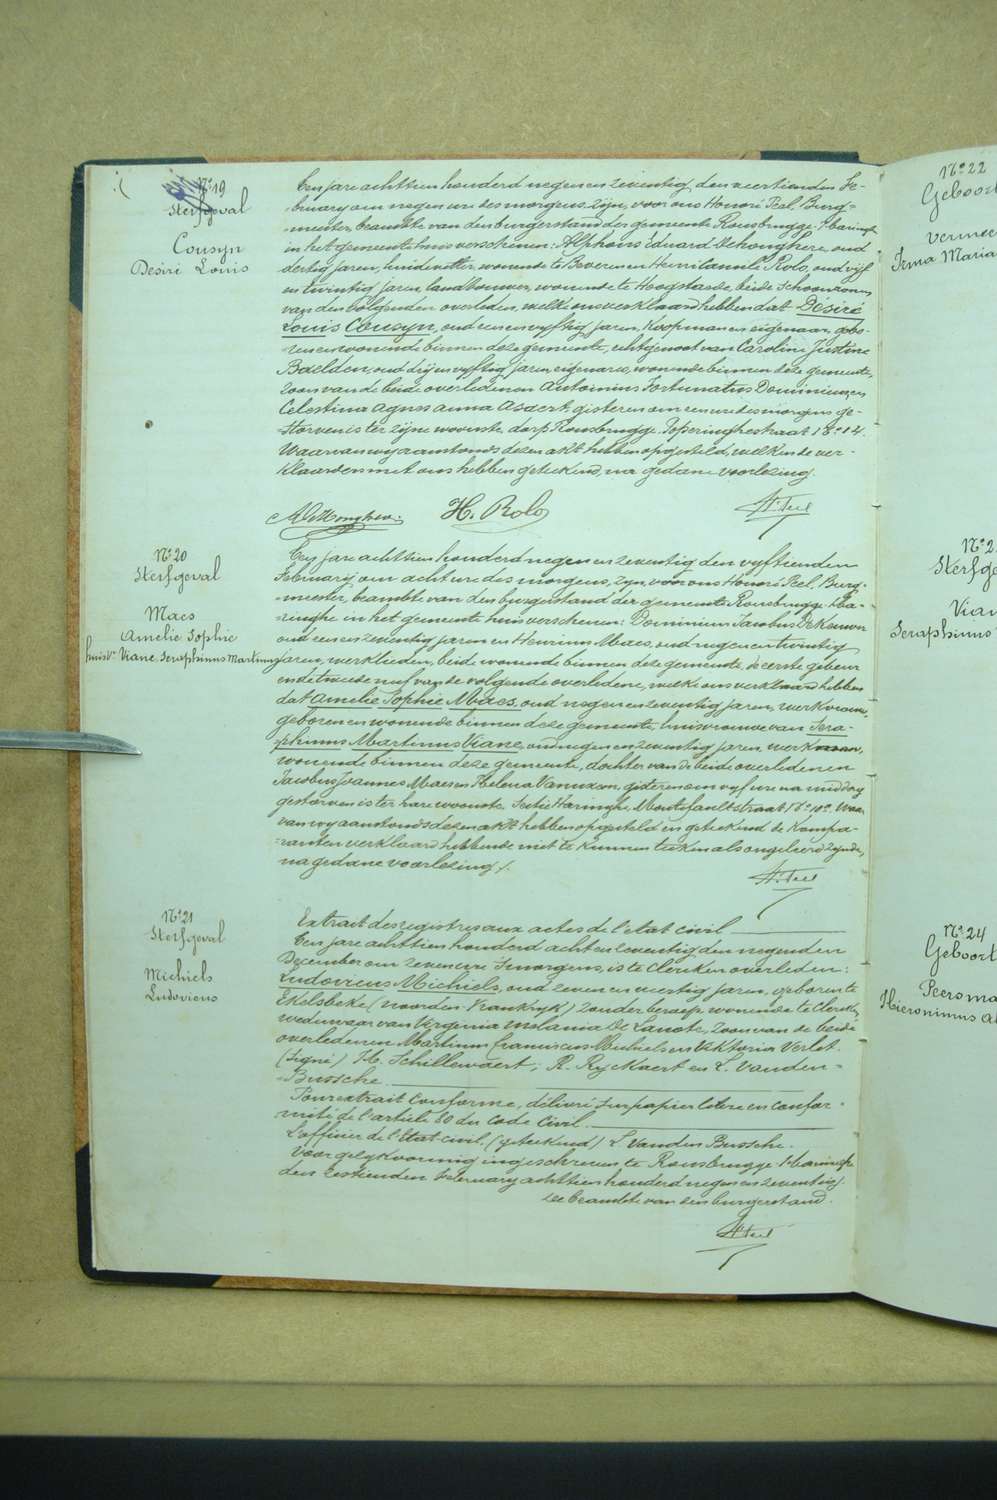 N° 19
Sterfgeval
Cousyn
Desiré Louis
Een jare achttien honderd negen en zeventig, den veertienden Fe-
bruary om negen ure des morgens, zijn, voor ons Honoré Peel, Burg-
meester, beambte van den burgerstand der gemeente Rousbrugge-Haringhe
in het gemeentehuis verschenen: Alphons Eduard Dehonghere, oud
dertig jaren, huidevetter, wonende te Beveren en Henri Rolo, oud vijf
en twintig jaren, landbouwer, wonende te Hoogstaede, beide schoonzonen
van den volgenden overleden, welke ons verklaard hebben dat Désiré
Louis Cousyn, oud een en vyftig jaren, Koopman en eigenaar, gebo-
ren en wonende binnen deze gemeente, echtgenoot van Caroline Justine
Baelden, oud dry en vyftig jaren, eigenares, wonende binnen deze gemeente,
zoon van de beide overledenen Antoinius Fortunatus Dominicus, en
Celestina Agnes Anna Asaert, gisteren om een ure des morgens ge-
storven is ter zijne woonste, dorp Rousbrugge, Poperinghestraat N° 14.
Waarvan wy aanstonds dezen akt hebben opgesteld, welken de ver-
klaarders met ons hebben geteekend, na gedane voorlezing.
H. Rolo
H. Peel
N° 20
Sterfgeval
Maes
Amelie Sophie
huisv. Viane Seraphinus Martinus
Een jare achttien honderd negen en zeventig den vyftienden
February om acht ure des morgens, zyn, voor ons Honoré Peel, Burg-
meester, beambte van den burgerstand der gemeente Rousbrugge-Ha-
ringhe in het gemeentehuis verschenen: Dominicus Jacobus
oud een en zeventig jaren en Henricus Maes, oud negen en twintig
jaren, werklieden, beide wonende binnen deze gemeente, de eerste gebuur
en de tweede neef van de volgende overledene, welke ons verklaard hebben
dat Amelie Sophie Maes, oud negen en zeventig jaren, werkvrouw,
geboren en wonende binnen deze gemeente, huisvrouwe van Sera-
phinus Martinus Viane, oud negen en zeventig jaren, werkman,
wonende binnen deze gemeente, dochter van de beide overledenen
Jacobus Joannes Maes en Helena, gisteren om vyf ure na middag
gestorven is ter hare woonste, Sectie Haringhe, N° 10. Waar-
van wy aanstonds dezen akt hebben opgesteld en geteekend de kompa-
ranten verklaard hebbende niet te kunnen teeken als ongeleerd zynde,
na gedane voorlezing.
H. Peel
N° 21
Sterfgeval
Michiels
Ludovicus
Extrait des registres aux actes de l'etat civil
Een jare achttien honderd acht en zeventig den negenden
December om zeven ure 's morgens, is te Clercken overleden:
Ludovicus Michiels, oud zeven en veertig jaren, geboren te
Ekelsbeke (noorden Frankryk) zonder beroep wonende te Clercken,
weduwaar van Virginia Melania De Lanote, zoon van de beide
overledenen Martinus Franciscus Michiels en Viktoria Verlet.
(Signé) H. Schillewaert, R. Ryckaert en L. Vanden-
Bussche.
Pour extrait conforme, délivré sur papier libre en confor-
mité de l'article 80 du Code Civil.
L'officier de l'Etat-civil. (geteekend) L. Vanden Bussche.
Voor gelykvormig ingeschreven te Rousbrugge-Haringhe
den zestienden February achttien honderd negen en zeventig.
De beambte van den burgerstand.
H. Peel
N° 22
Geboort
Irma Maria
Sterfge
Vian
Seraphinus
N° 24
Geboort
Peersma
Hieronimus Al